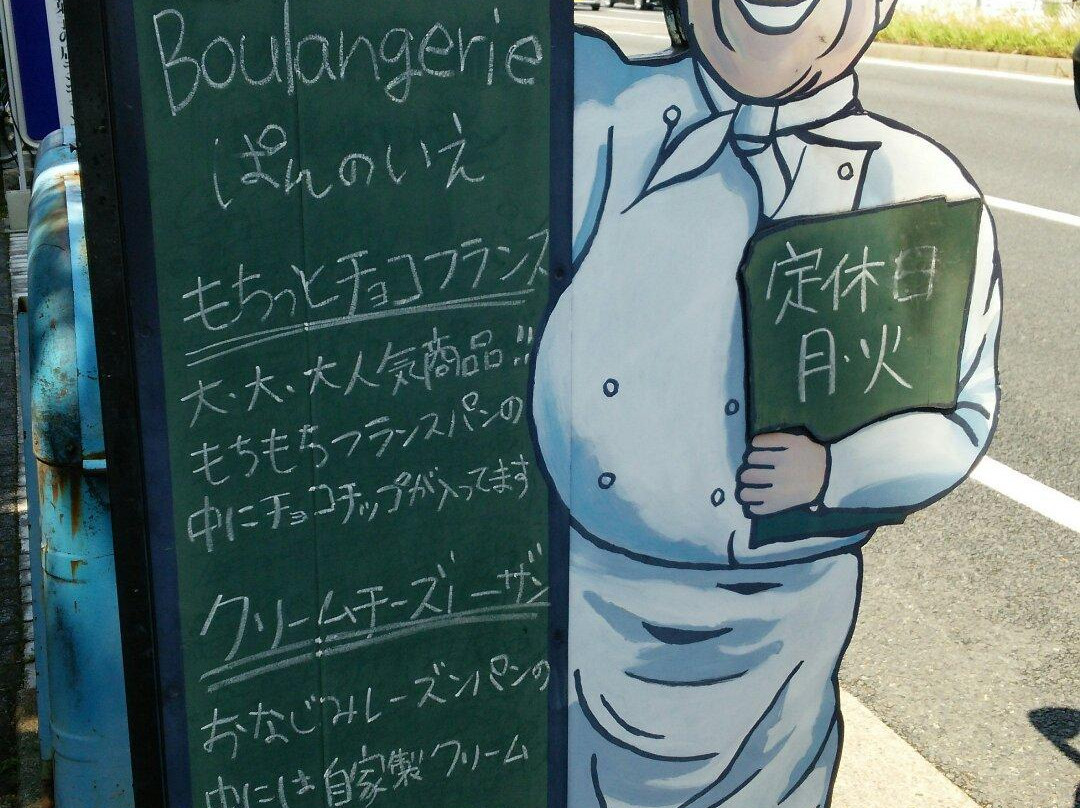 Boulangerie
ぱんのいえ
もちっとチョコフランス
大、大、大人気商品!!
もちもちフランスパンの
中にチョコチップが入ってます
クリームチーズレーザン
おなじみレーズンパンの
中には自家製クリーム
定休日
月・火